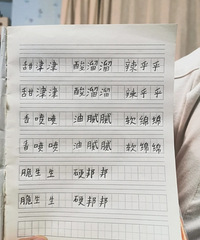 甜津津 酸溜溜 辣乎乎
甜津津 酸溜溜 辣乎乎
香喷喷 油腻腻 软绵绵
香喷喷 油腻腻 软绵绵
脆生生 硬邦邦
脆生生 硬邦邦